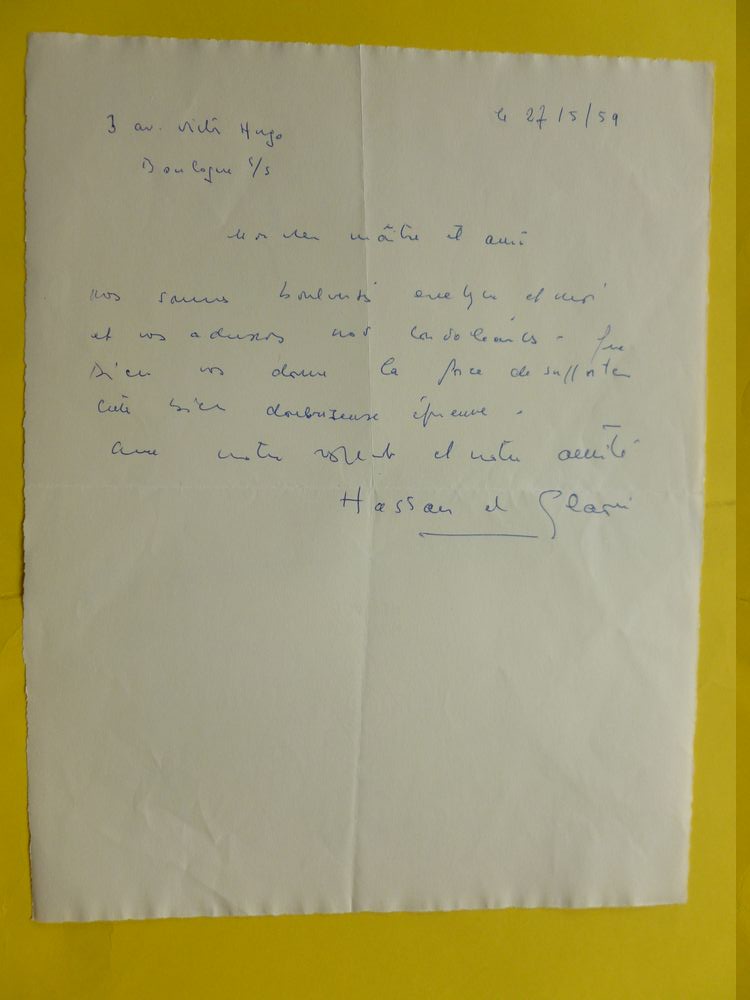 3 av. Victor Hugo
Boulogne s/s
le 27/5/59
Mon cher maître et ami
nous sommes bouleversés Evelyne et moi
et vous adressons nos condoléances - Que
Dieu vous donne la force de supporter
cette bien douloureuse épreuve.
Avec notre respect et notre amitié
Hassan el Glaoui